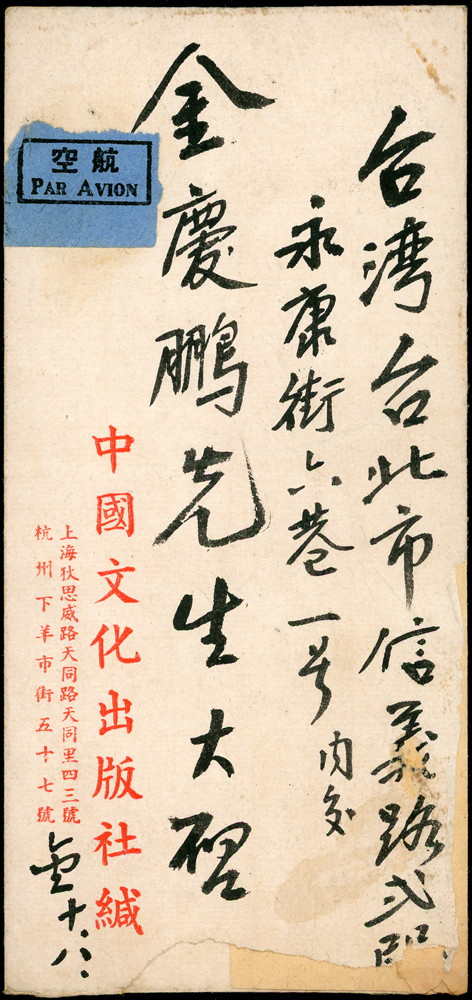 台湾台北市信義路弍段
永康街六巷一号内交
金慶鵬先生大啓
空航
PAR AVION
中國文化出版社緘
上海狄思威路天同路天同里四三號
杭州下羊市街五十七號
金十、八、